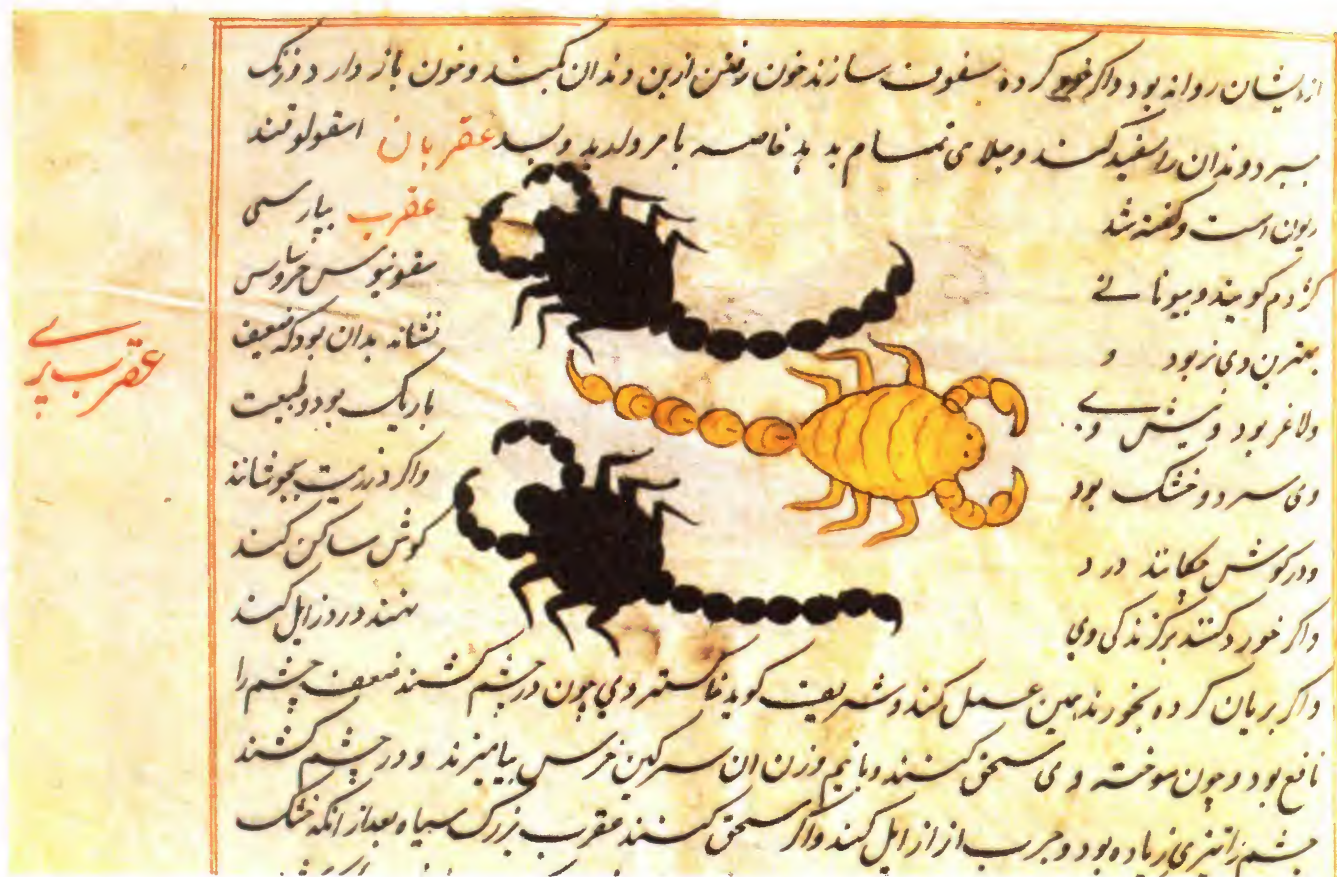 ازایشان روانه بود واکر کرده سفوف سازند خون رفتن ازبن دندان کبند وخون باز دارد وزنک
ببرد ودندان را سفید کند وجلای تمام بدهد خاصه با مروارید وبسد عقربان اسقولوقند
ریون است وکفته شد عقرب بپارسی
کژدم کویند وبیونانے سقونیوس
بهترین وی نر بود و نشانه بدان بود که ضعیف
ولاغر بود ونیش وے باریک بود وطبیعت
وی سرد وخشک بود واکر در زیت بجوشانند
ودرکوش چکانند درد کوش ساکن کند
واکر خورد کنند برکزندکی وی نهند درد زایل کند
واکر بریان کرده بخورند همین عمل کند وشریف کوید خاکستر وی چون درچشم کشند ضعف چشم را
نافع بود وچون سوخته وی سحق کنند وبا نیم وزن ان سرکین خرس بیامیزند ودرچشم کشند
چشم را تیزی زیاده بود وجرب از زایل کند واکر سحق کنند عقرب بزرک سیاه بعد از انکه خشک
عقرب برے